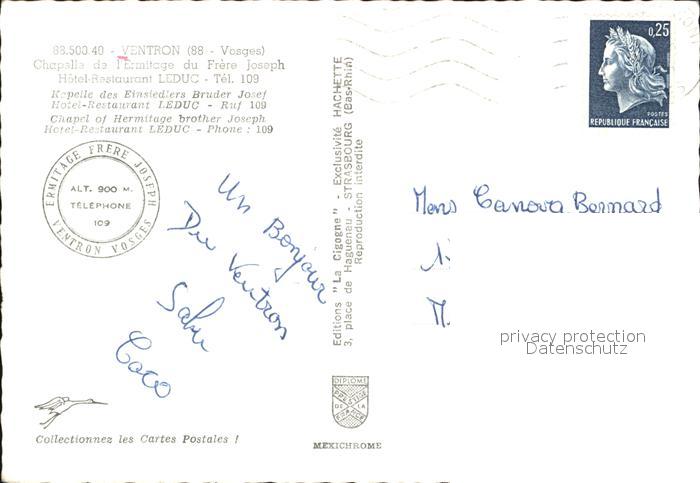 88.500.40 - VENTRON (88 - Vosges)
Chapelle de l'Ermitage du Frère Joseph
Hôtel-Restaurant LEDUC - Tél. 109
Kapelle des Einsiedlers Bruder Josef
Hotel-Restaurant LEDUC - Ruf 109
Chapel of Hermitage brother Joseph
Hotel-Restaurant LEDUC - Phone : 109
ERMITAGE FRERE JOSEPH
ALT. 900 M.
TÉLÉPHONE
109
VENTRON VOSGES
Un Bonjour
Du Ventron
Salu
Coco
Collectionnez les Cartes Postales !
Editions "La Cigogne" - Exclusivité HACHETTE
3, place de Haguenau - STRASBOURG (Bas-Rhin)
Reproduction interdite
DIPLOME
PRESTIGE
DE LA
FRANCE
MEXICHROME
0,25
POSTES
REPUBLIQUE FRANÇAISE
Mens Canova Bernard
1
M.
privacy protection
Datenschutz